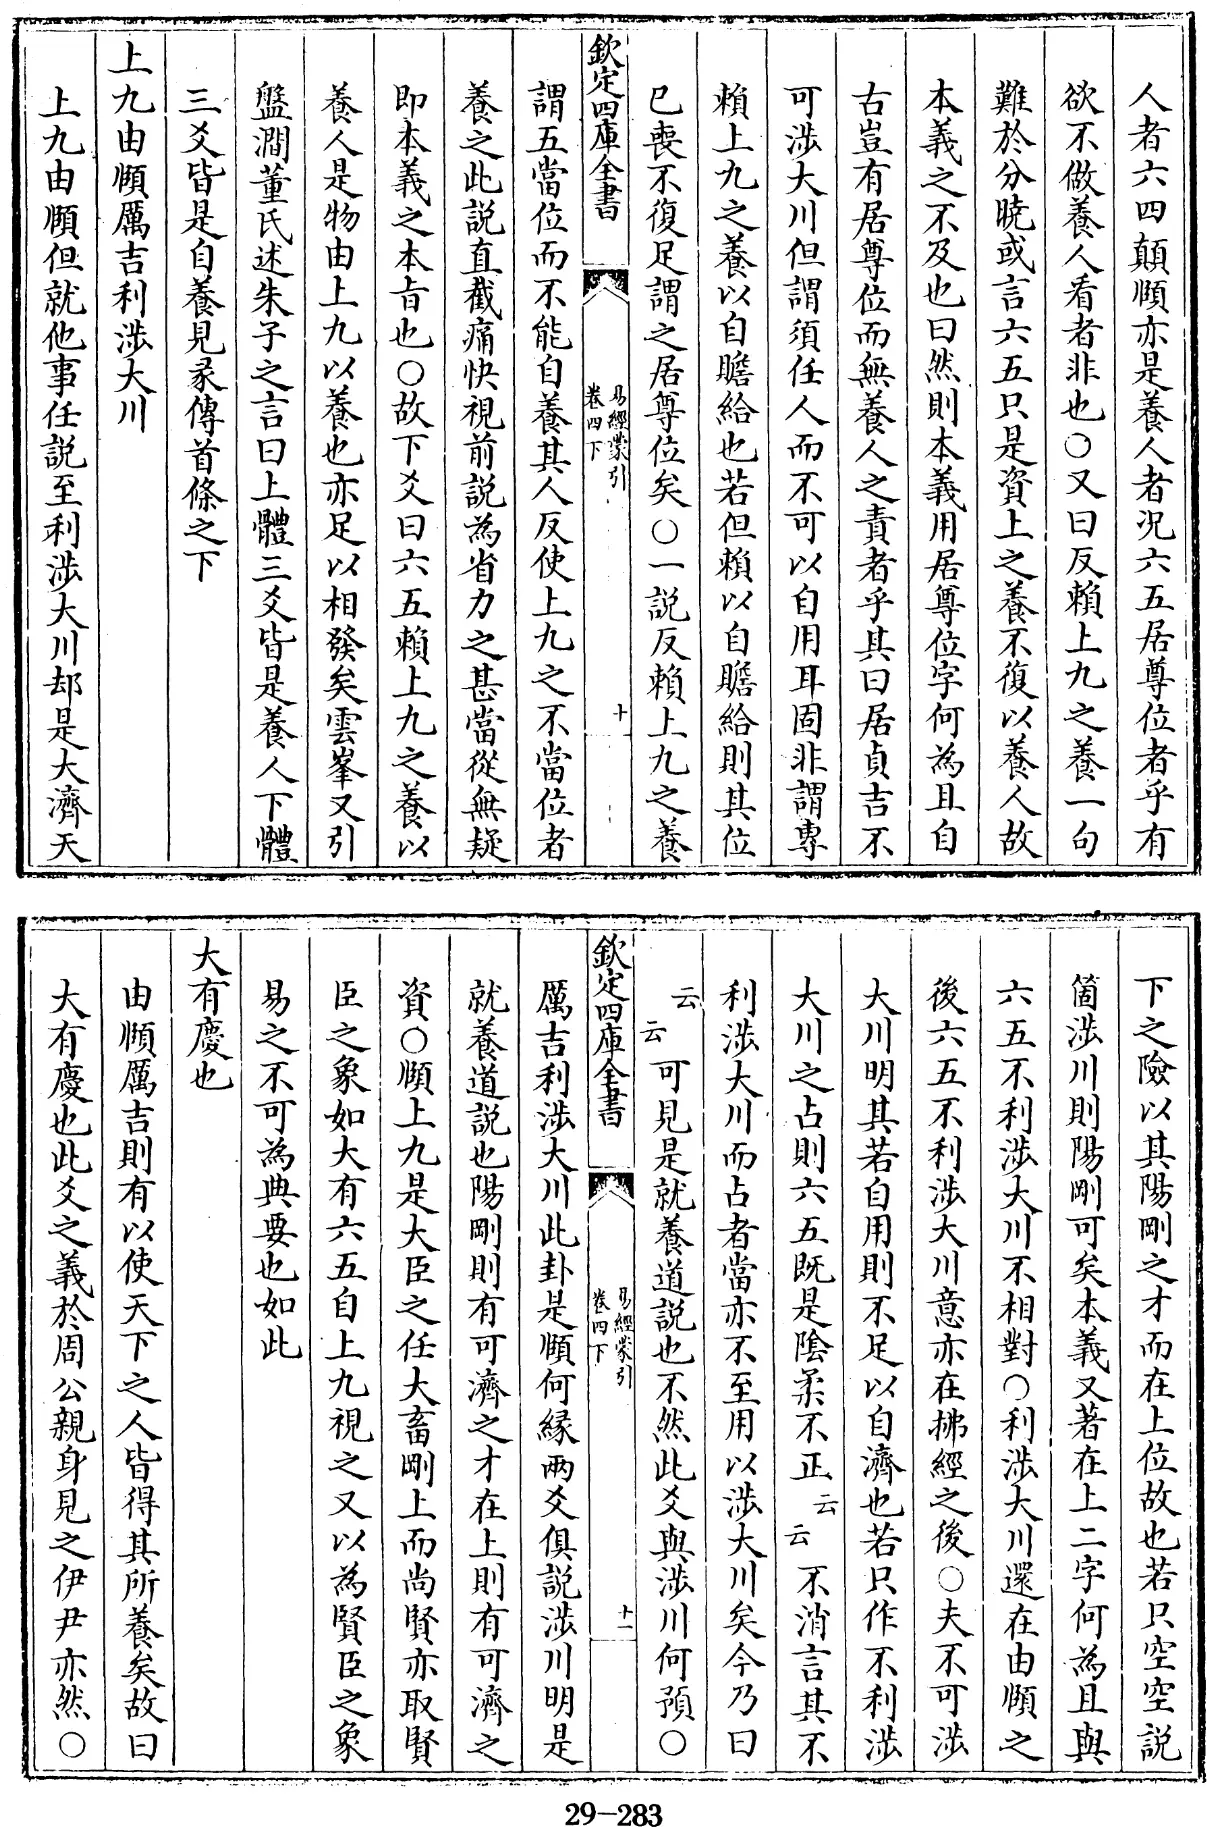 人者六四顛頤亦是養人者况六五居尊位者乎有
欲不做養人看者非也○又曰反賴上九之養一句
難於分曉或言六五只是資上之養不復以養人故
本義之不及也曰然則本義用居尊位字何為且自
古豈有居尊位而無養人之責者乎其曰居貞吉不
可涉大川但謂須任人而不可以自用耳固非謂專
賴上九之養以自贍給也若但賴以自贍給則其位
已喪不復足謂之居尊位矣○一説反賴上九之養
欽定四庫全書
易經蒙引
卷四下
十
謂五當位而不能自養其人反使上九之不當位者
養之此説直截痛快視前説為省力之甚當從無疑
即本義之本旨也○故下爻曰六五賴上九之養以
養人是物由上九以養也亦足以相發矣雲峯又引
盤澗董氏述朱子之言曰上體三爻皆是養人下體
三爻皆是自養見彖傳首條之下
上九由頤厲吉利涉大川
上九由頤但就他事任説至利涉大川却是大濟天
下之險以其陽剛之才而在上位故也若只空空説
箇涉川則陽剛可矣本義又著在上二字何為且與
六五不利涉大川不相對○利涉大川還在由頤之
後六五不利涉大川意亦在拂經之後○夫不可涉
大川明其若自用則不足以自濟也若只作不利涉
大川之占則六五既是陰柔不正云云不消言其不
利涉大川而占者當亦不至用以涉大川矣今乃曰
云云可見是就養道説也不然此爻與涉川何預○
欽定四庫全書
易經蒙引
卷四下
十一
厲吉利涉大川此卦是頤何縁兩爻俱説涉川明是
就養道説也陽剛則有可濟之才在上則有可濟之
資○頤上九是大臣之任大畜剛上而尚賢亦取賢
臣之象如大有六五自上九視之又以為賢臣之象
易之不可為典要也如此
大有慶也
由頤厲吉則有以使天下之人皆得其所養矣故曰
大有慶也此爻之義於周公親身見之伊尹亦然○
29-283